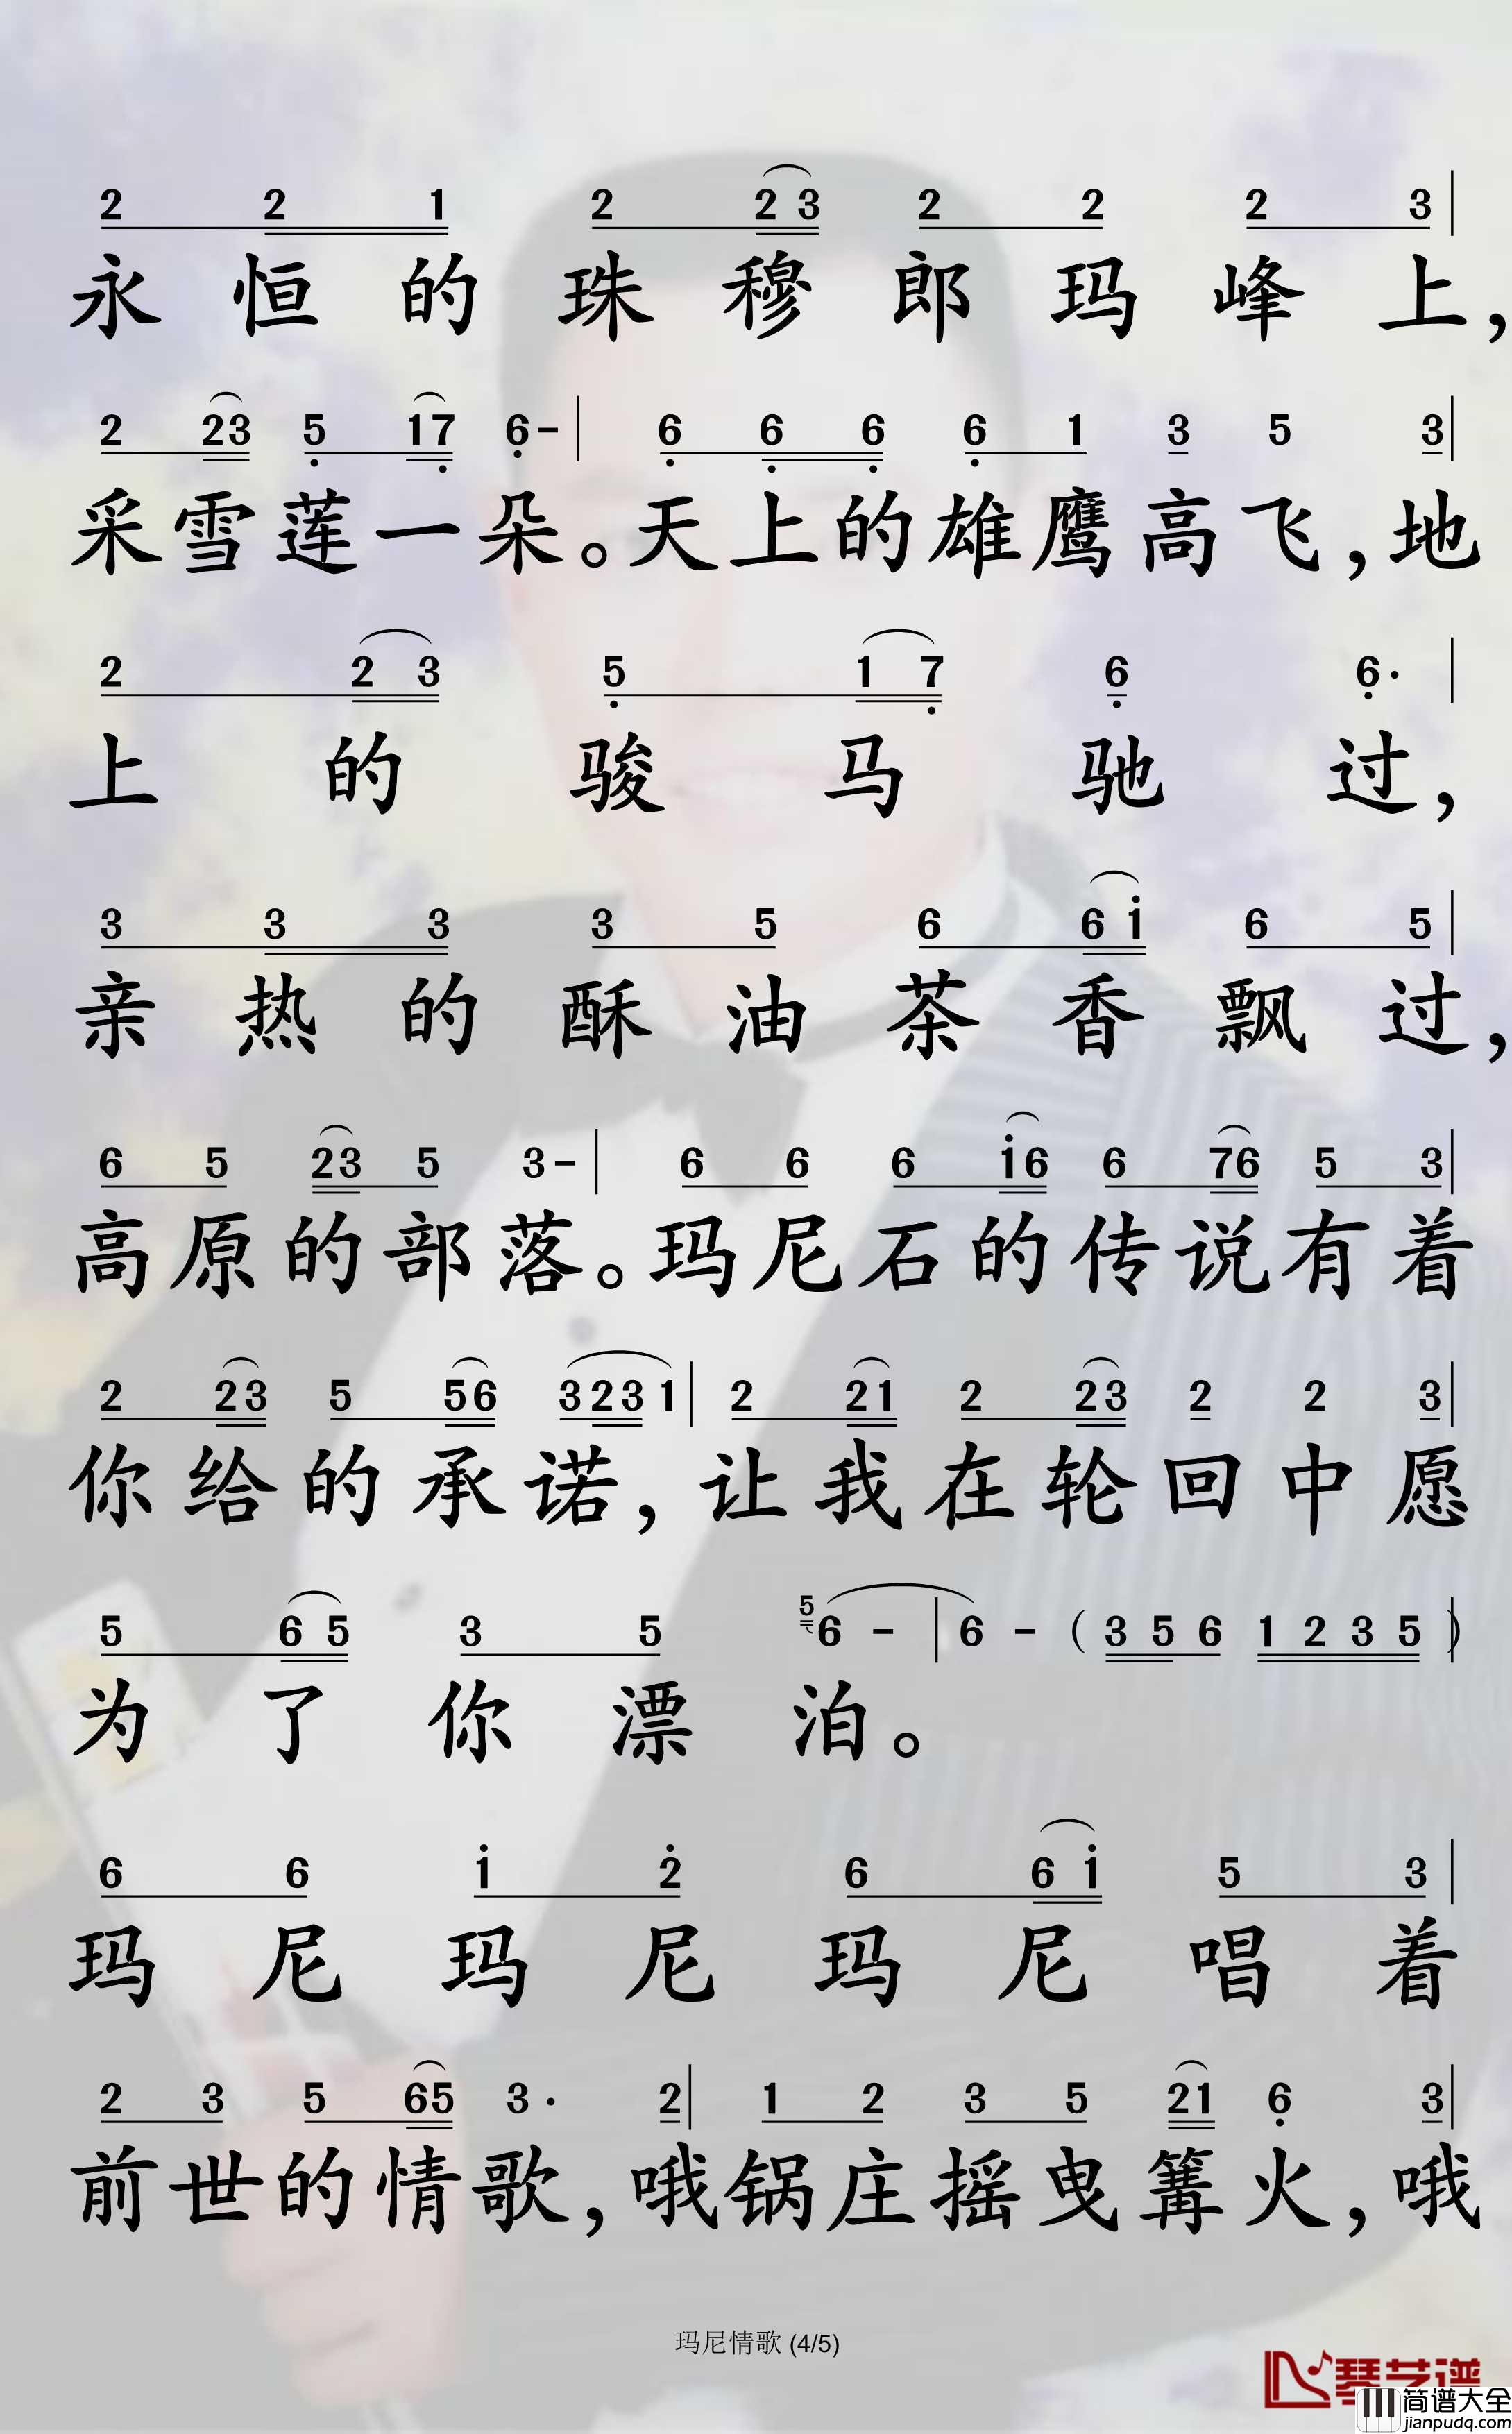 2 2 1 2 2 3 2 2 2 3
永恒的珠穆郎玛峰上，
2 2 3 5 1 7 6 - 6 6 6 6 1 3 5 3
采雪莲一朵。天上的雄鹰高飞，地
2 2 3 5 1 7 6 6·
上的骏马驰过，
3 3 3 3 5 6 6 i 6 5
亲热的酥油茶香飘过，
6 5 2 3 5 3 - 6 6 6 i 6 6 7 6 5 3
高原的部落。玛尼石的传说有着
2 2 3 5 5 6 3 2 3 1 2 2 1 2 2 3 2 2 3
你给的承诺，让我在轮回中愿
5 6 5 3 5 5 6 - 6 - ( 3 5 6 1 2 3 5 )
为了你漂泊。
6 6 i 2 6 6 i 5 3
玛尼玛尼玛尼唱着
2 3 5 6 5 3· 2 1 2 3 5 2 1 6 3
前世的情歌，哦锅庄摇曳篝火，哦
玛尼情歌 (4/5)
琴艺谱
简谱大全
jianpudq.com